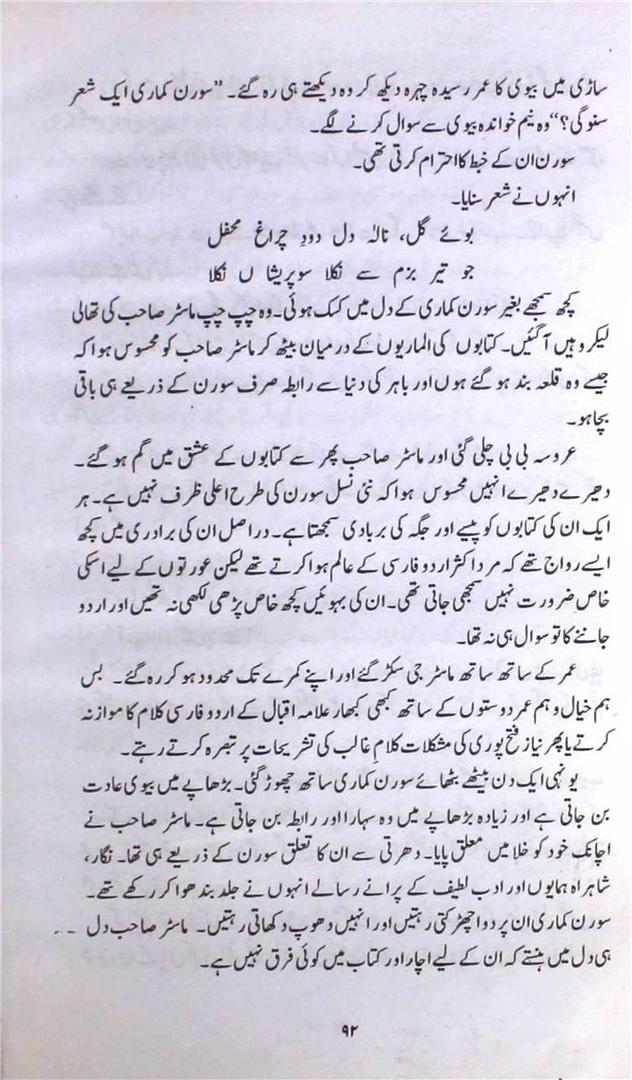 ساڑی میں بیوی کا عمر رسیدہ چہرہ دیکھ کر وہ دیکھتے ہی رہ گئے۔ ”سورن کماری ایک شعر
سنوگی؟“ وہ نیم خواندہ بیوی سے سوال کرنے لگے۔
سورن ان کے خبط کا احترام کرتی تھی۔
انہوں نے شعر سنایا۔
بوئے گل، نالۂ دل دودِ چراغ محفل
جو تیر بزم سے نکلا سو پریشا ں نکلا
کچھ سمجھے بغیر سورن کماری کے دل میں کسک ہوئی۔ وہ چپ چپ ماسٹر صاحب کی تھالی
لیکر وہیں آ گئیں۔ کتابوں کی الماریوں کے درمیان بیٹھ کر ماسٹر صاحب کو محسوس ہوا کہ
جیسے وہ قلعہ بند ہو گئے ہوں اور باہر کی دنیا سے رابطہ صرف سورن کے ذریعے ہی باقی
بچا ہو۔
عروسہ بی بی چلی گئی اور ماسٹر صاحب پھر سے کتابوں کے عشق میں گم ہو گئے۔
دھیرے دھیرے انہیں محسوس ہوا کہ نئی نسل سورن کی طرح اعلی ظرف نہیں ہے۔ ہر
ایک ان کی کتابوں کو پیسے اور جگہ کی بربادی سمجھتا ہے۔ در اصل ان کی برادری میں کچھ
ایسے رواج تھے کہ مرد اکثر اردو فارسی کے عالم ہوا کرتے تھے لیکن عورتوں کے لیے اسکی
خاص ضرورت نہیں سمجھی جاتی تھی۔ ان کی بہوئیں کچھ خاص پڑھی لکھی نہ تھیں اور اردو
جاننے کا تو سوال ہی نہ تھا۔
عمر کے ساتھ ساتھ ماسٹر جی سکڑ گئے اور اپنے کمرے تک محدود ہو کر رہ گئے۔ بس
ہم خیال و ہم عمر دوستوں کے ساتھ کبھی کبھار علامہ اقبال کے اردو فارسی کلام کا موازنہ
کرتے یا پھر نیاز فتح پوری کی مشکلات کلامِ غالب کی تشریحات پر تبصرہ کرتے رہتے۔
یونہی ایک دن بیٹھے بٹھائے سورن کماری ساتھ چھوڑ گئی۔ بڑھاپے میں بیوی عادت
بن جاتی ہے اور زیادہ بڑھاپے میں وہ سہارا اور رابطہ بن جاتی ہے۔ ماسٹر صاحب نے
اچانک خود کو خلا میں معلق پایا۔ دھرتی سے ان کا تعلق سورن کے ذریعے ہی تھا۔ نگار،
شاہراہ ہمایوں اور ادب لطیف کے پرانے رسالے انہوں نے جلد بندھوا کر رکھے تھے۔
سورن کماری ان پر دوا چھڑکتی رہتیں اور انہیں دھوپ دکھاتی رہتیں۔ ماسٹر صاحب دل
ہی دل میں ہنستے کہ ان کے لیے اچار اور کتاب میں کوئی فرق نہیں ہے۔
۹۲